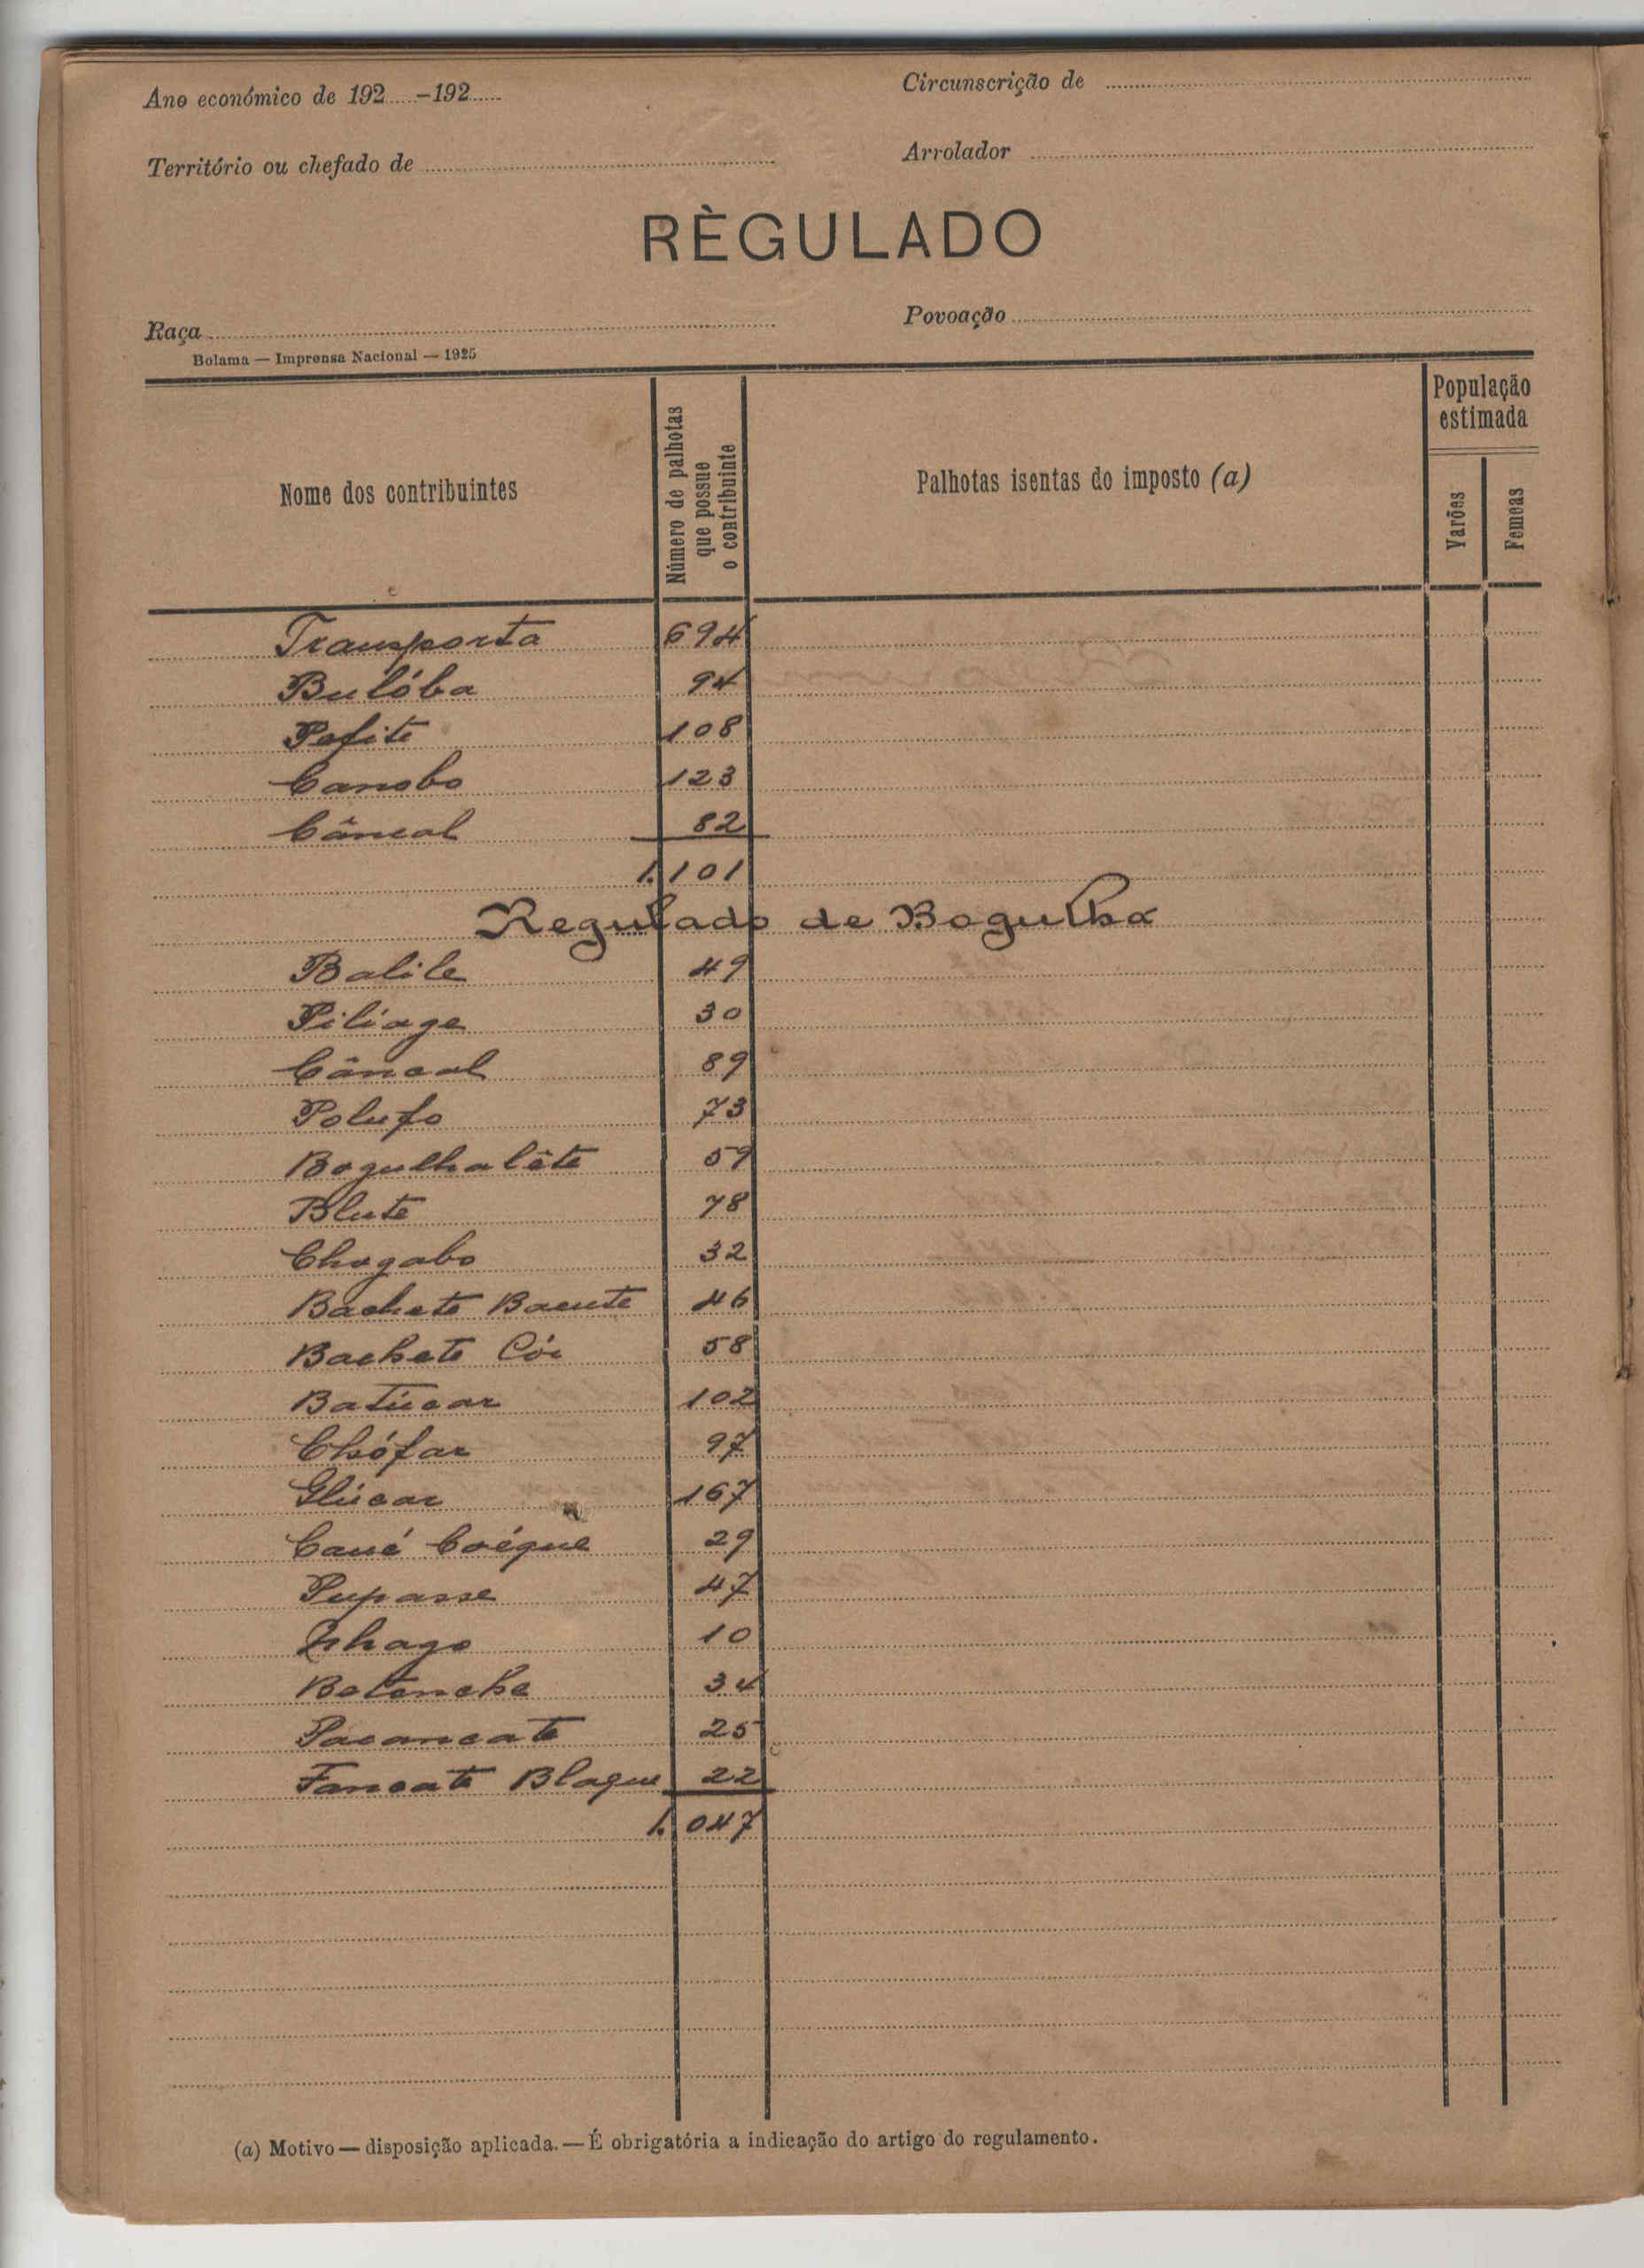 Ano económico de 192.....-192.....
Circunscrição de
Território ou chefado de
Arrolador
RÈGULADO
Raça
Povoação
Bolama — Imprensa Nacional — 1925
Nome dos contribuintes
Número de palhotas que possue o contribuinte
Palhotas isentas do imposto (a)
População estimada
Varões
Femeas
Transporta 694
Bulóba 94
Pefite 108
Canobo 123
Câncal 82
1.101
Regulado de Bogulha
Balile 49
Piliage 30
Câncal 89
Polufo 73
Bogulhalête 59
Blute 78
Chogabo 32
Bachete Baeute 46
Bachete Cór 58
Batúcar 102
Chófar 97
Glúcar 167
Caué Coéque 29
Pupasse 47
Nhago 10
Betenche 34
Pacancate 25
Fancate Blaque 22
1.047
(a) Motivo — disposição aplicada. — É obrigatória a indicação do artigo do regulamento.